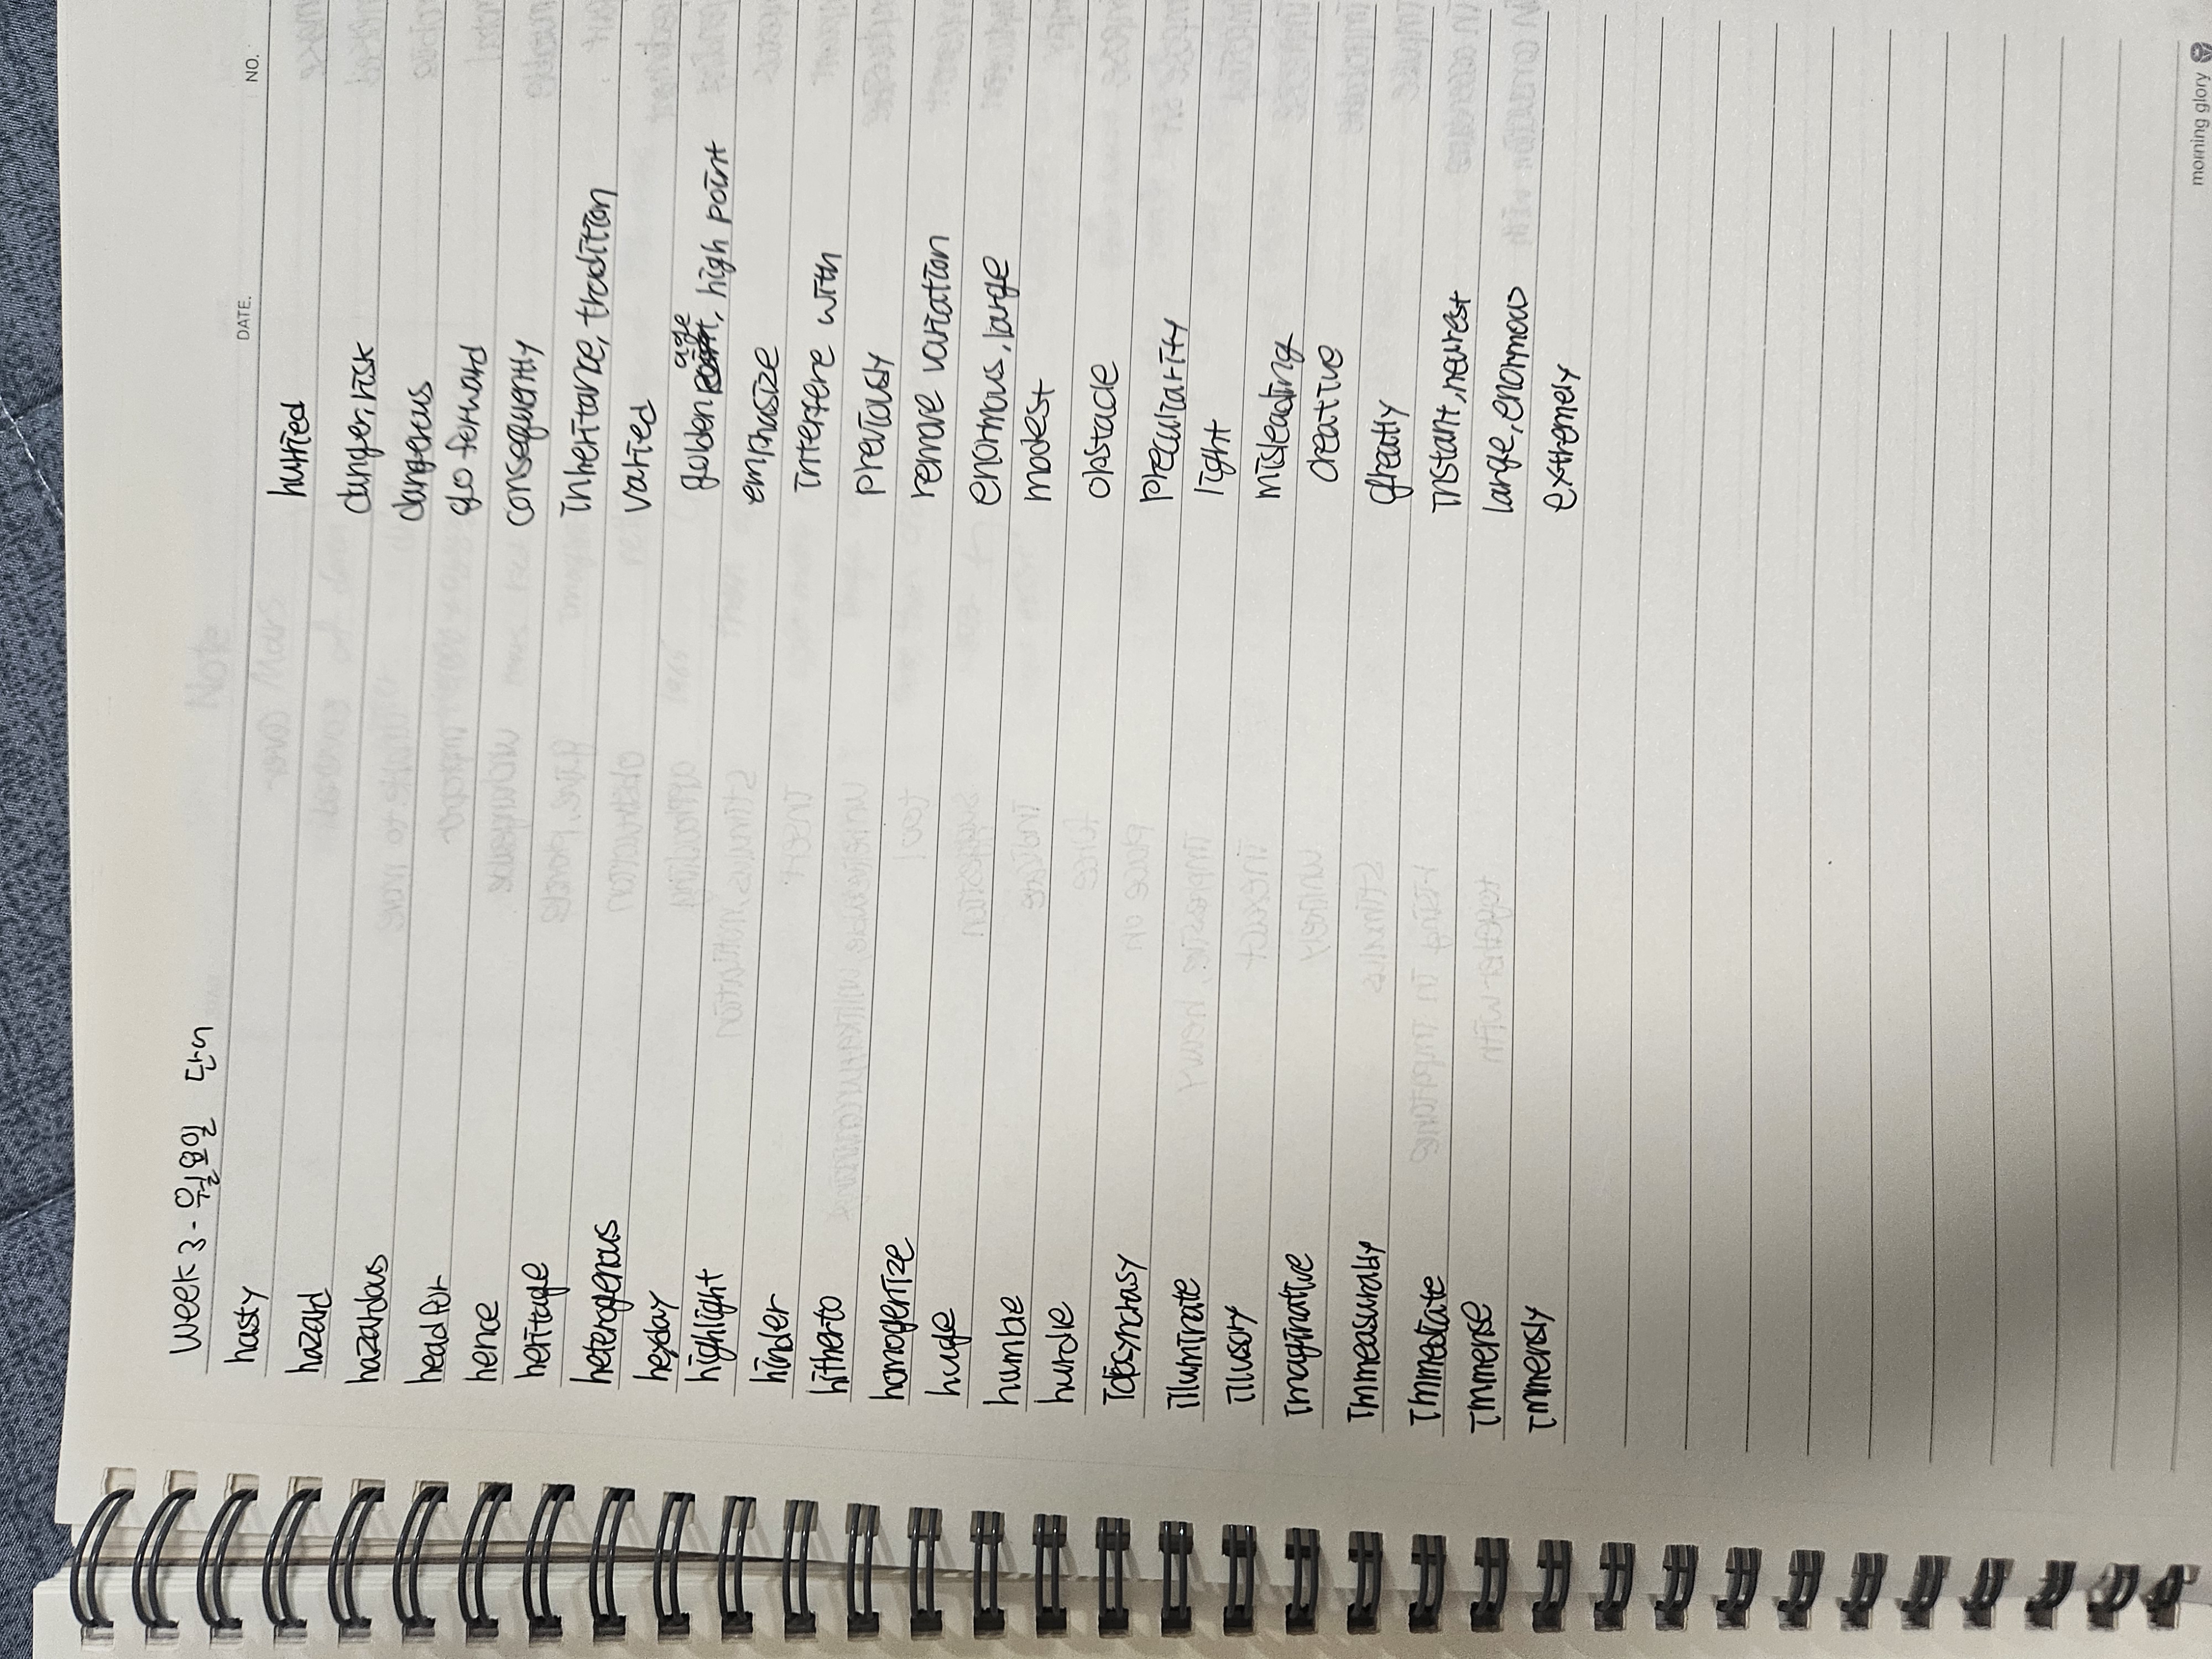 NO.
DATE.
Week 3 - 월요일 단어
hasty hurried
hazard danger, risk
hazardous dangerous
head for go forward
hence consequently
heritage inheritance, tradition
heterogenous varied
heyday golden age, high point
highlight emphasize
hinder interfere with
hitherto previously
homogenize remove variation
huge enormous, large
humble modest
hurdle obstacle
Idiosyncrasy peculiarity
illuminate light
illusory misleading
Imaginative creative
Immeasurably greatly
Immediate instant, nearest
Immense large, enormous
Immensly extremely
morning glory